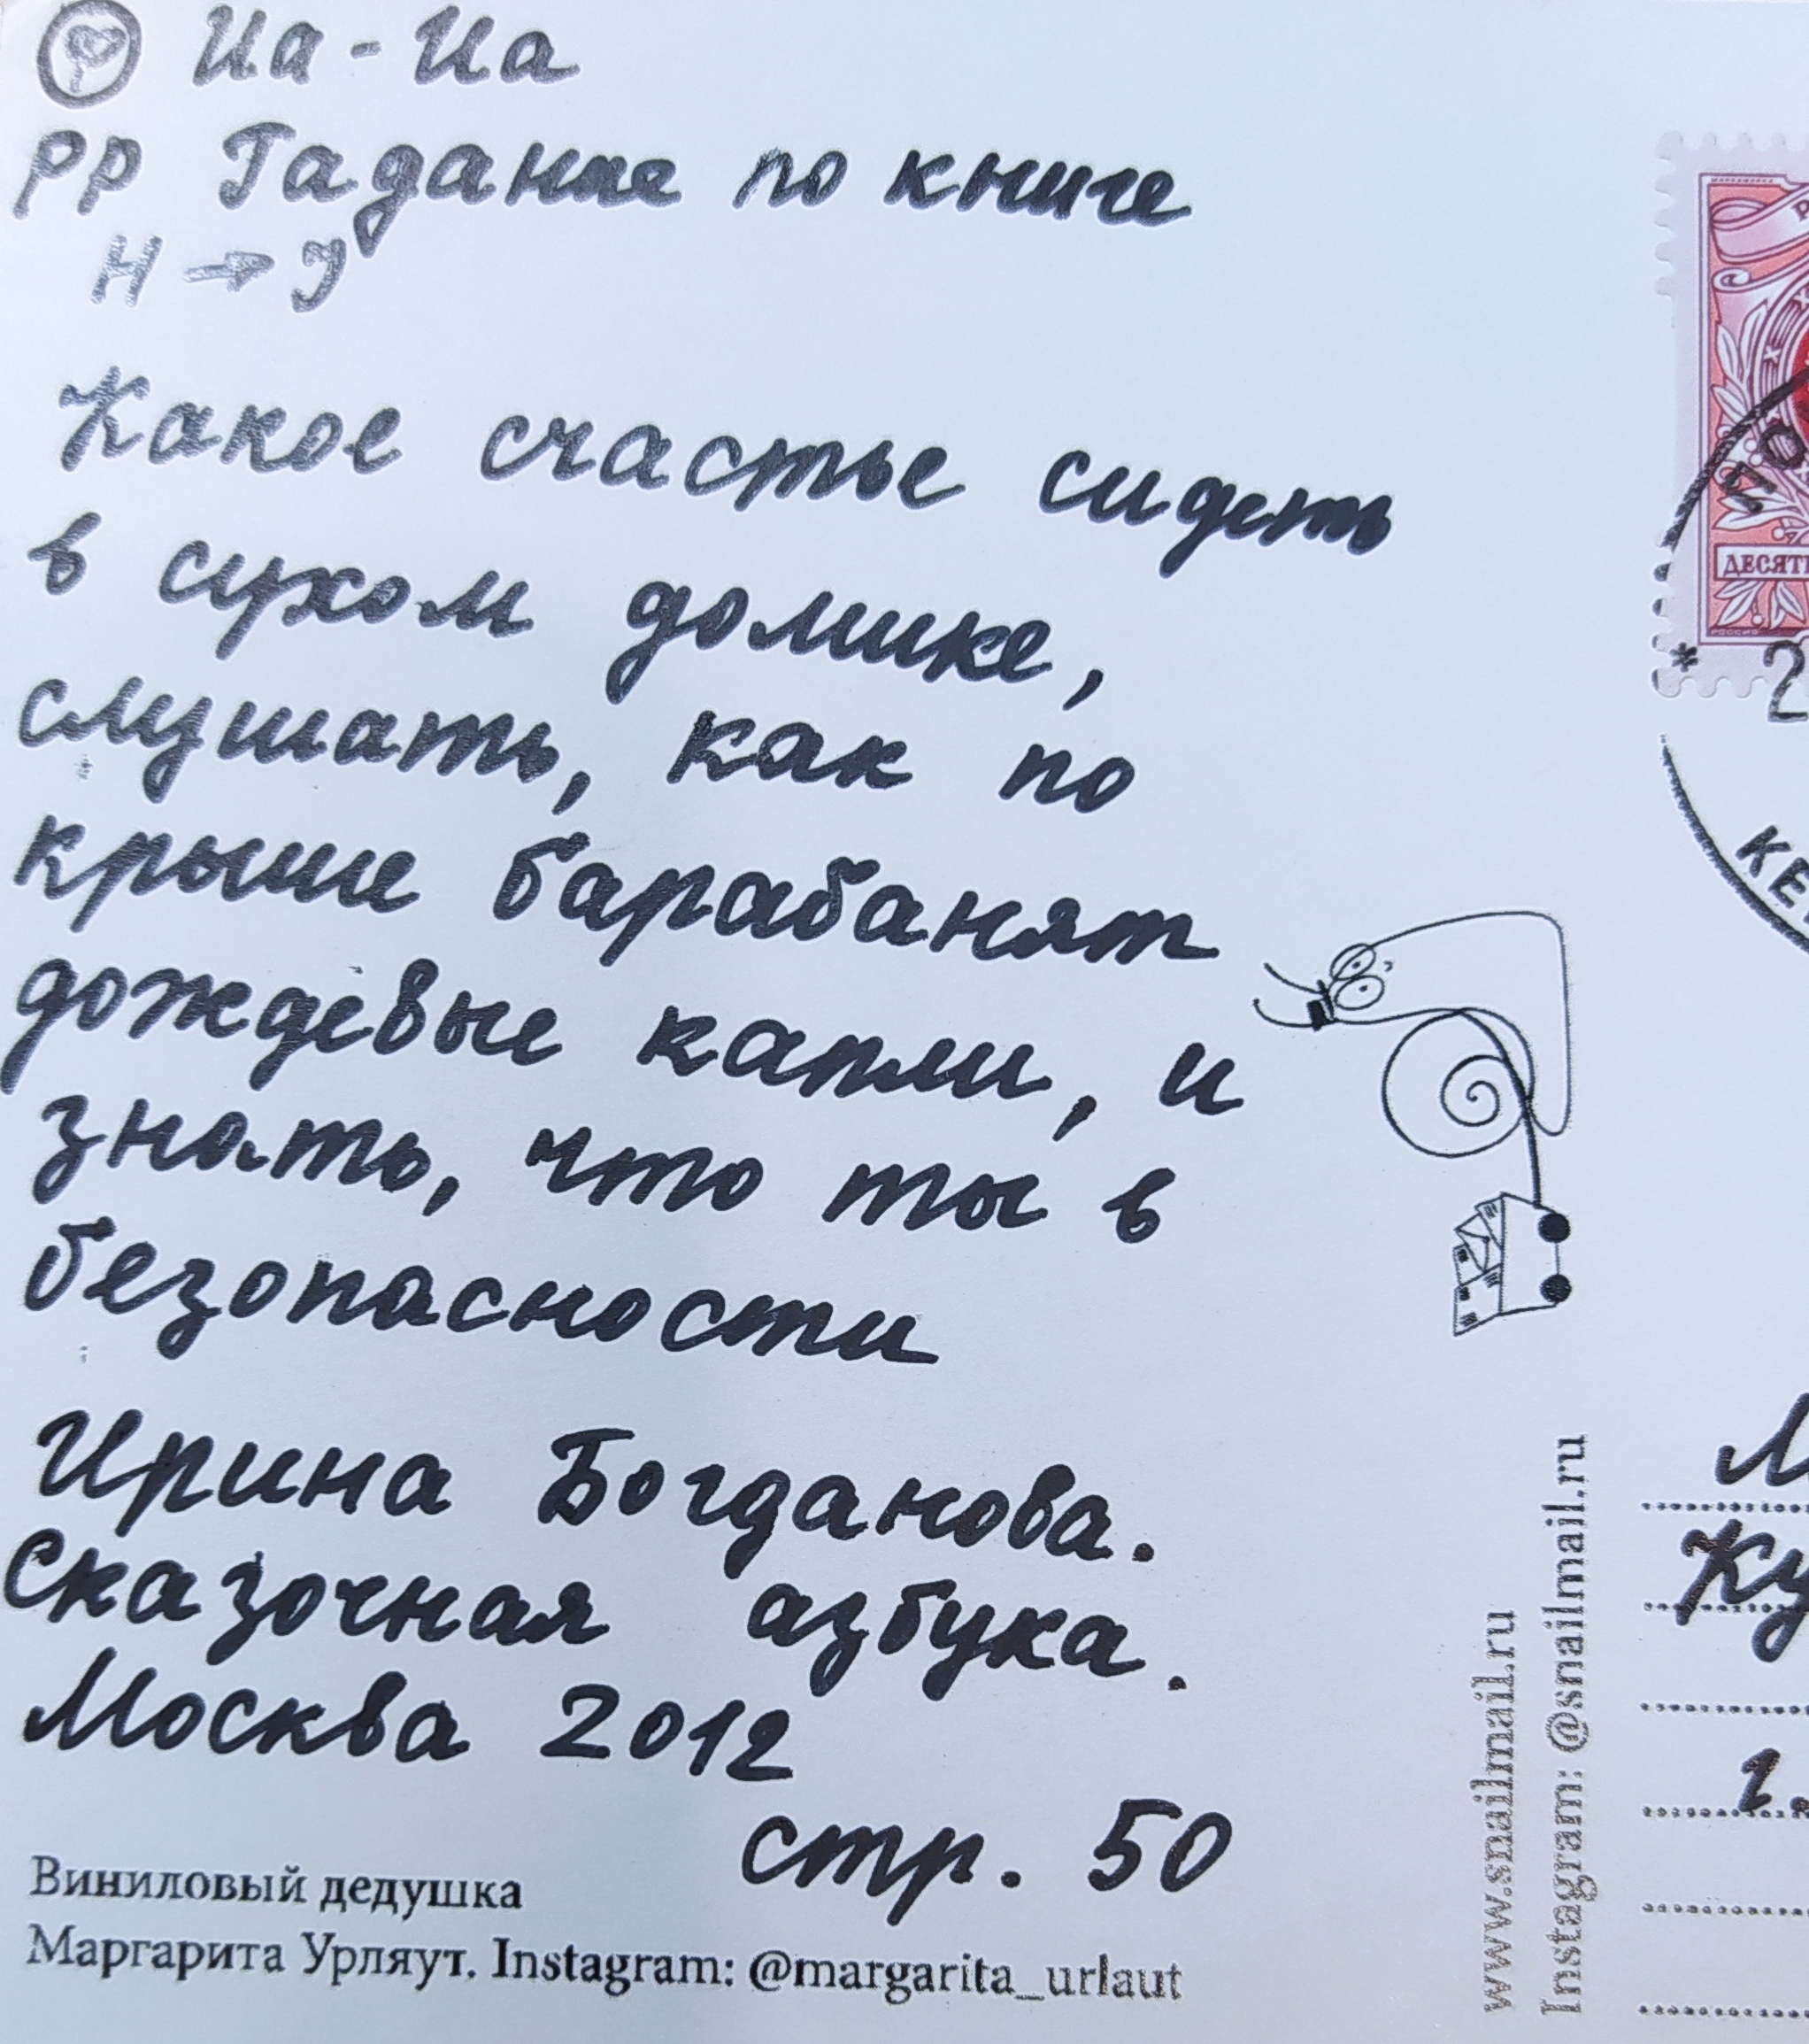 Иа - Иа
РР Гадание по книге
Н → У
Какое счастье сидеть
в сухом домике,
слушать, как по
крыше барабанят
дождевые капли, и
знать, что ты в
безопасности
Ирина Богданова.
Сказочная азбука.
Москва 2012
стр. 50
Виниловый дедушка
Маргарита Урляут. Instagram: @margarita_urlaut
www.snailmail.ru
Instagram: @snailmail.ru
ДЕСЯТ
РОССИЯ
* 2
КЕ
М
Ку
г.